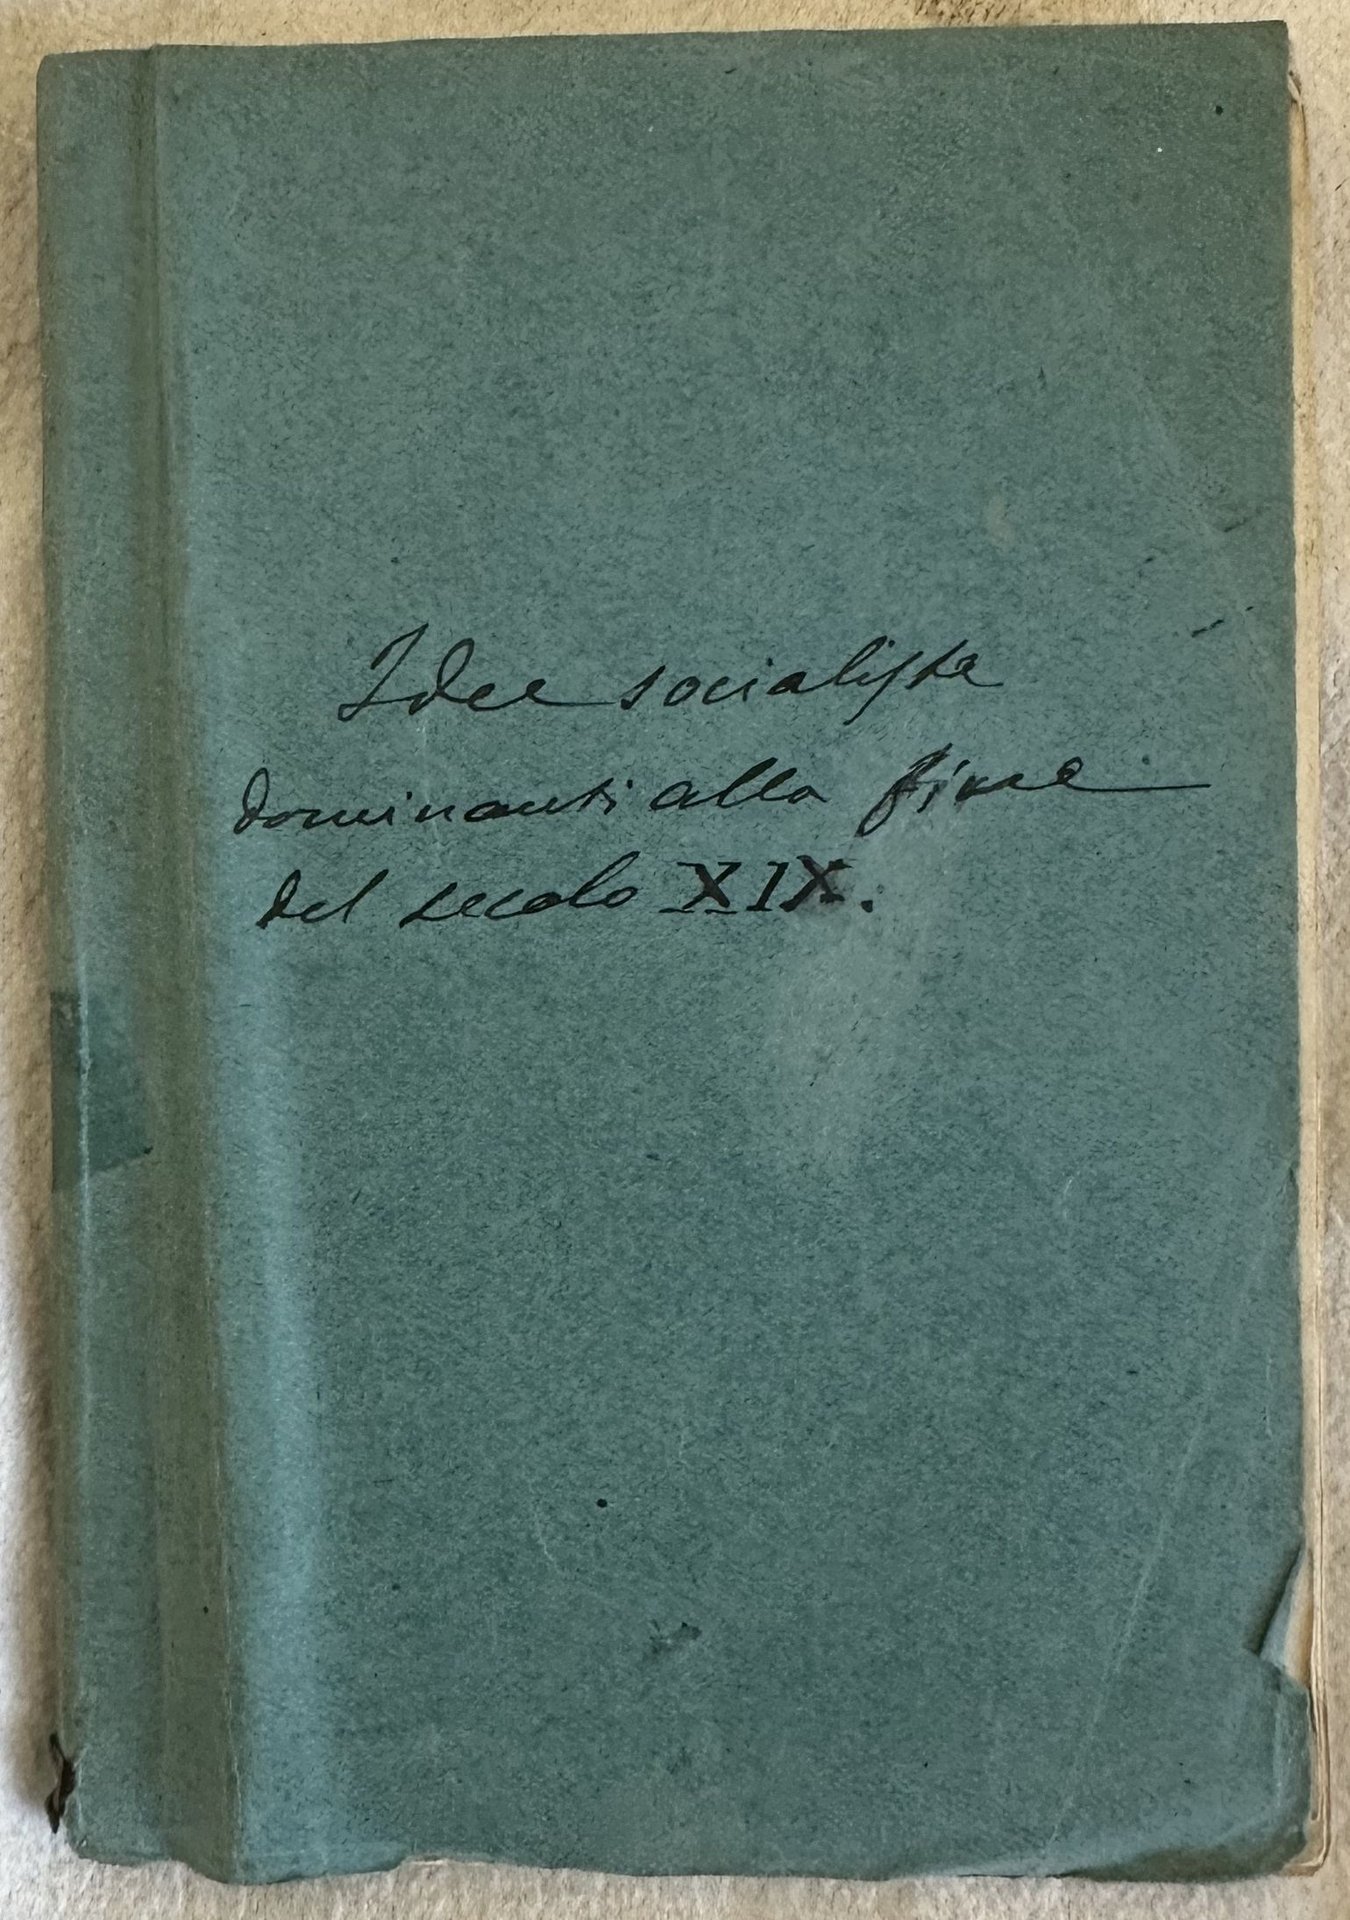 Idee socialiste
dominanti alla fine
del secolo XIX.